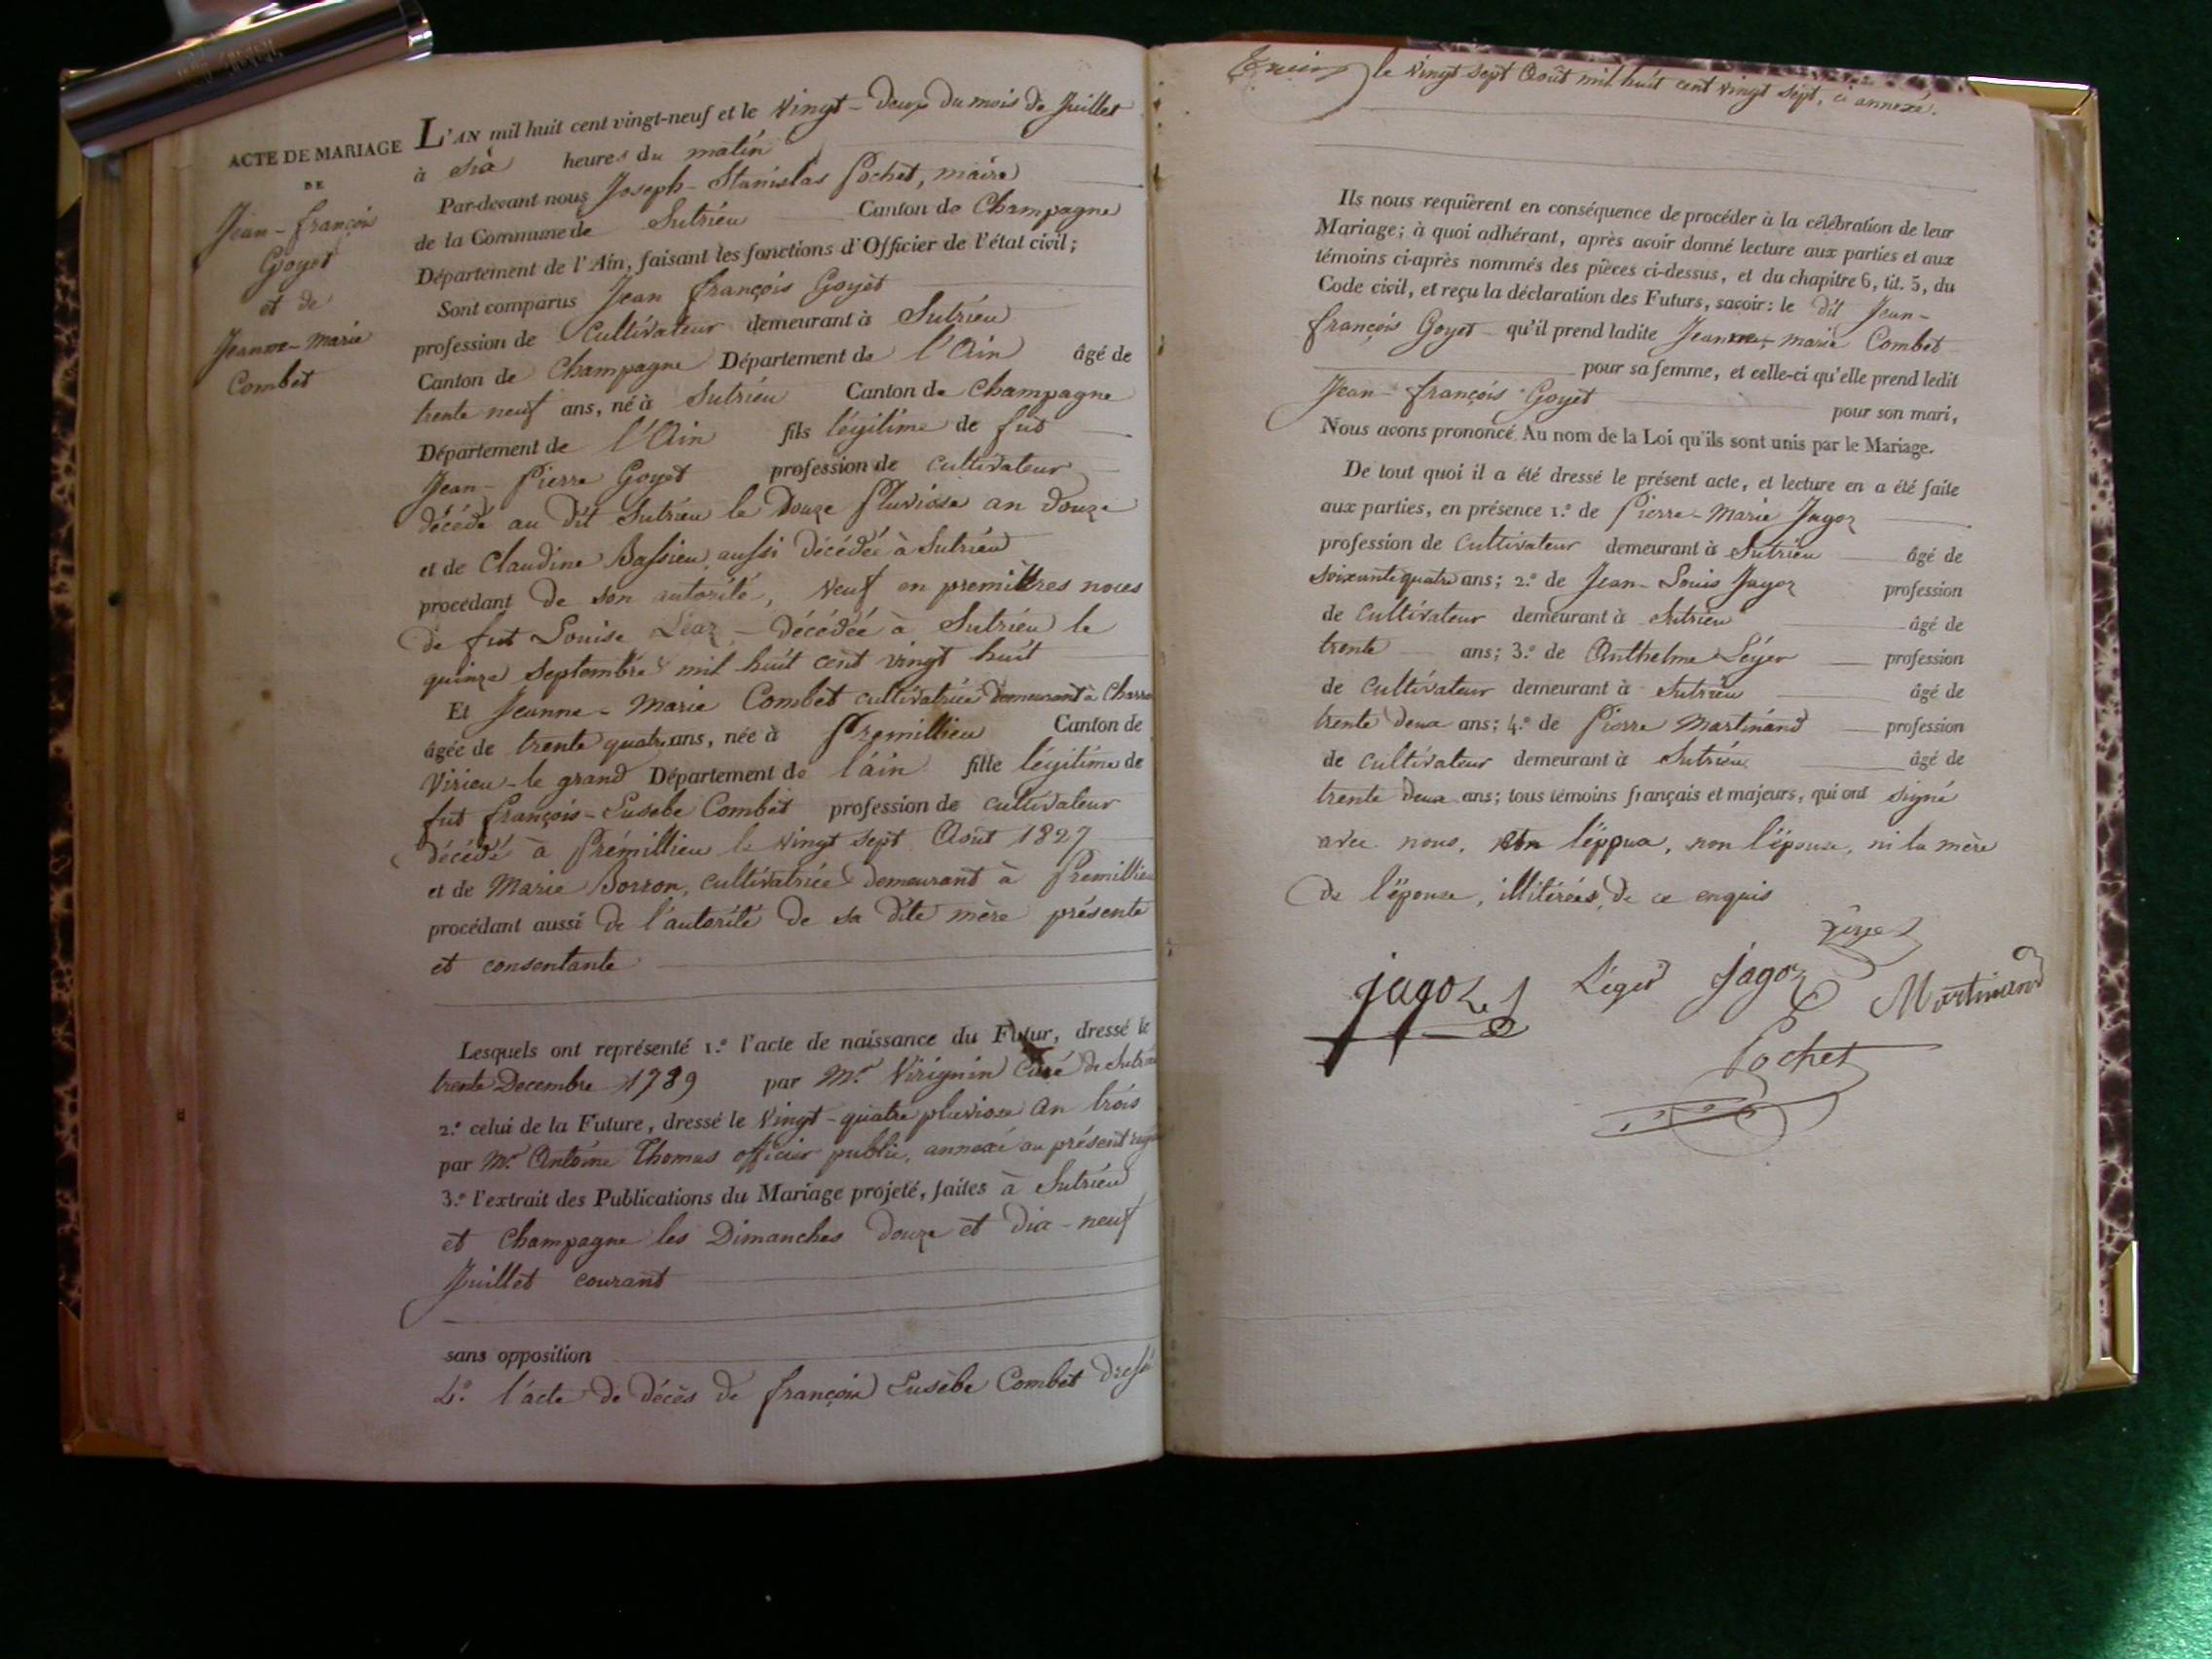 ACTE DE MARIAGE
DE
Jean-françois
Goyet
et de
Jeanne-Marie
Combet
L'AN mil huit cent vingt-neuf et le Vingt-deux du mois de Juillet
à six heures du matin
Par-devant nous Joseph-Stanislas Pochet, maire
de la Commune de Sutrieu Canton de Champagne
Département de l'Ain, faisant les fonctions d'Officier de l'état civil;
Sont comparus Jean françois Goyet
profession de Cultivateur demeurant à Sutrieu
Canton de Champagne Département de l'Ain âgé de
trente neuf ans, né à Sutrieu Canton de Champagne
Département de l'Ain fils légitime de fut
Jean-Pierre Goyet profession de cultivateur
décédé au dit Sutrieu le Douze Pluviose an douze
et de Claudine Bassieu aussi décédée à Sutrieu
procédant de son autorité, Veuf en premières noces
de fut Louise décédée à Sutrieu le
quinze septembre mil huit cent vingt huit
Et Jeanne-Marie Combet cultivatrice demeurant à
âgée de trente quatre ans, née à Premillieu Canton de
Virieu-le grand Département de l'ain fille légitime de
fut françois-Eusebe Combet profession de cultivateur
décédé à Prémillieu le Vingt sept Août 1827
et de Marie Borron, cultivatrice demeurant à Premillieu
procédant aussi de l'autorité de sa dite mère présente
et consentante
Lesquels ont représenté 1.º l'acte de naissance du Futur, dressé le
trente Decembre 1789 par Mr. Virignin Curé de Sutrieu
2.º celui de la Future, dressé le Vingt-quatre pluviose an trois
par Mr. Antoine Thomas officier public, annexé au présent
3.º l'extrait des Publications du Mariage projeté, faites à Sutrieu
et Champagne les Dimanches douze et dix-neuf
Juillet courant
sans opposition
4.º l'acte de décès de françois Eusèbe Combet dressé
le Vingt sept Août mil huit cent vingt sept, ci annexé.
Ils nous requièrent en conséquence de procéder à la célébration de leur
Mariage; à quoi adhérant, après avoir donné lecture aux parties et aux
témoins ci-après nommés des pièces ci-dessus, et du chapitre 6, tit. 5, du
Code civil, et reçu la déclaration des Futurs, savoir: le dit Jean-
françois Goyet qu'il prend ladite Jeanne-marie Combet
pour sa femme, et celle-ci qu'elle prend ledit
Jean-françois Goyet pour son mari,
Nous avons prononcé Au nom de la Loi qu'ils sont unis par le Mariage.
De tout quoi il a été dressé le présent acte, et lecture en a été faite
aux parties, en présence 1.º de Pierre-Marie Jagoz
profession de Cultivateur demeurant à Sutrieu âgé de
soixante quatre ans; 2.º de Jean-Louis Jagoz profession
de Cultivateur demeurant à Sutrieu âgé de
trente ans; 3.º de Anthelme Léger profession
de Cultivateur demeurant à Sutrieu âgé de
trente deux ans; 4.º de Pierre Martinand profession
de cultivateur demeurant à Sutrieu âgé de
trente deux ans; tous témoins français et majeurs, qui ont signé
avec nous, non l'époux, non l'épouse, ni la mère
de l'épouse, illitérés, de ce enquis
jagoz
Léger
Jagoz
Martinand
Pochet